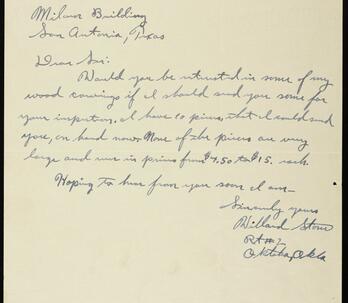 Milam Building
San Antonio, Texas
Dear Sir:
Would you be intrested in some of my
wood carvings if I should send you some for
your inspection. I have 10 pieces that I could send
you, on hand now. None of the pieces are very
large and run in prices from $4.50 to $15. each.
Hoping to hear from you soon I am—
Sincerely yours
Willard Stone
Rt #2
Oktaha, Okla